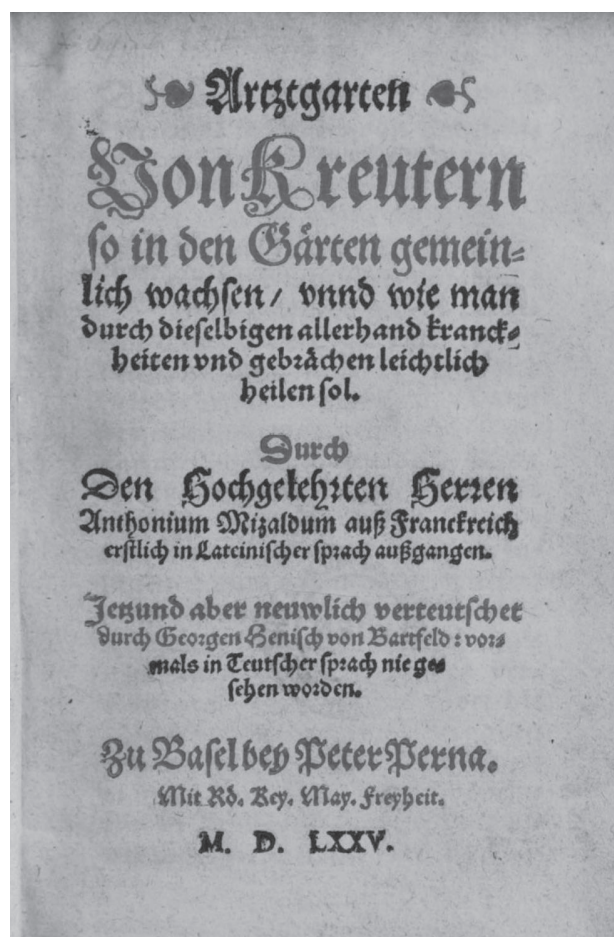 Artztgarten
Von Kreutern
so in den Gärten gemein=
lich wachsen / vnnd wie man
durch dieselbigen allerhand kranck=
heiten vnd gebrächen leichtlich
heilen sol.
Durch
Den Hochgelehrten Herren
Anthonium Mizaldum auß Franckreich
erstlich in Lateinischer sprach außgangen.
Jetzund aber neuwlich verteutschet
durch Georgen Henisch von Bartfeld: vor=
mals in Teutscher sprach nie ge=
sehen worden.
Zu Basel bey Peter Perna.
Mit Rö. Key. May. Freyheit.
M. D. LXXV.